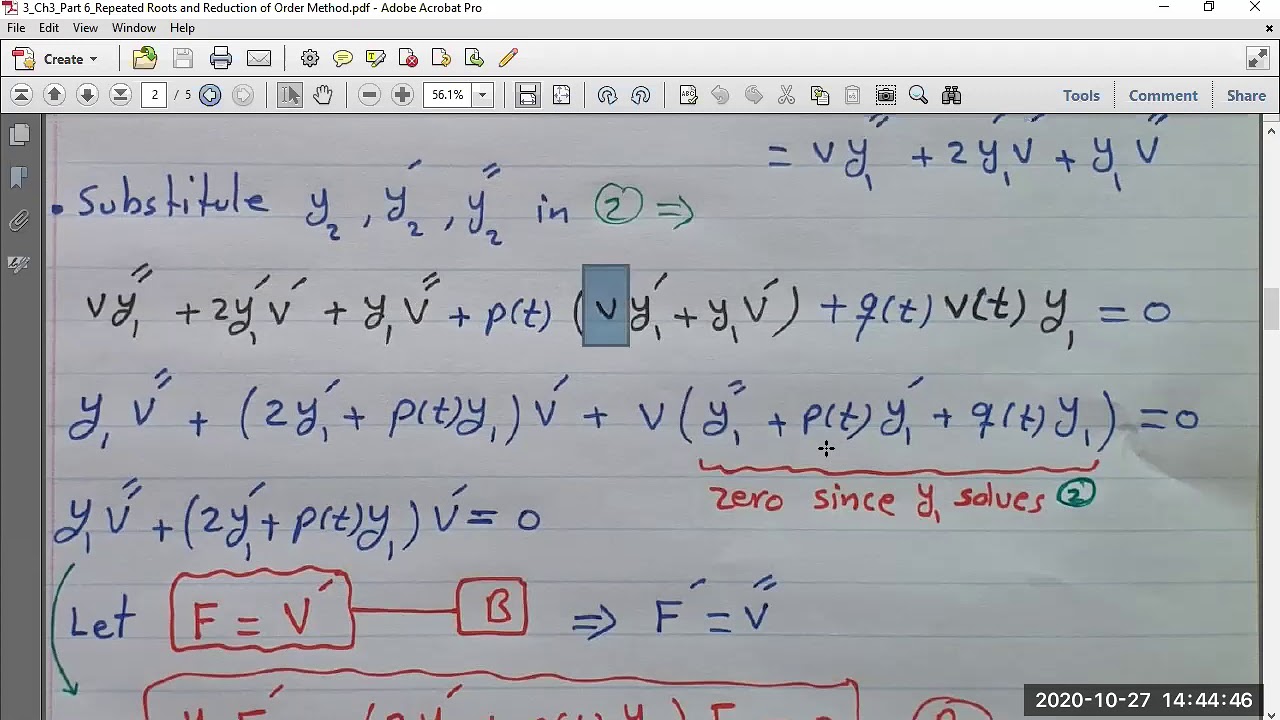 3_Ch3_Part 6_Repeated Roots and Reduction of Order Method.pdf - Adobe Acrobat Pro
File Edit View Window Help
Create
2 / 5 56.1% Tools Comment Share
= v y₁″ + 2 y₁′ v′ + y₁ v″
• Substitute y₂ , y₂′ , y₂″ in ② ⇒
v y₁″ + 2 y₁′ v′ + y₁ v″ + p(t) (v y₁′ + y₁ v′) + q(t) v(t) y₁ = 0
y₁ v″ + (2 y₁′ + p(t) y₁) v′ + v (y₁″ + p(t) y₁′ + q(t) y₁) = 0
zero since y₁ solves ②
y₁ v″ + (2 y₁′ + p(t) y₁) v′ = 0
Let F = v′ B ⇒ F′ = v″
2020-10-27 14:44:46